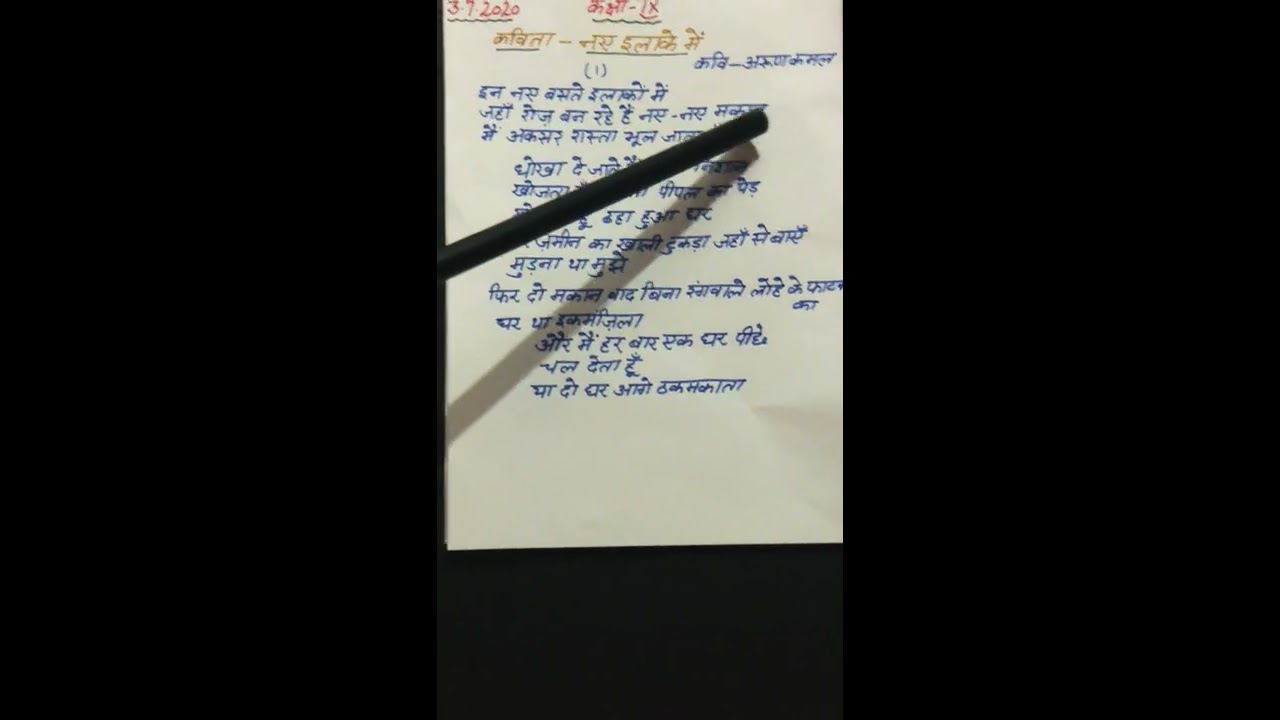 3.7.2020 कक्षा-IX
कविता - नए इलाके में
कवि - अरूण कमल
(1)
इन नए बसते इलाकों में
जहाँ रोज़ बन रहे हैं नए-नए
मैं अकसर रास्ता भूल
धोखा दे जाते हैं
खोजता पीपल का पेड़
हूँ ढहा हुआ घर
ज़मीन का खाली टुकड़ा जहाँ से बाएँ
मुड़ना था मुझे
फिर दो मकान बाद बिना रंगवाले लोहे के
का
घर था इकमंज़िला
और मैं हर बार एक घर पीछे
चल देता हूँ
या दो घर आगे ठकमकाता